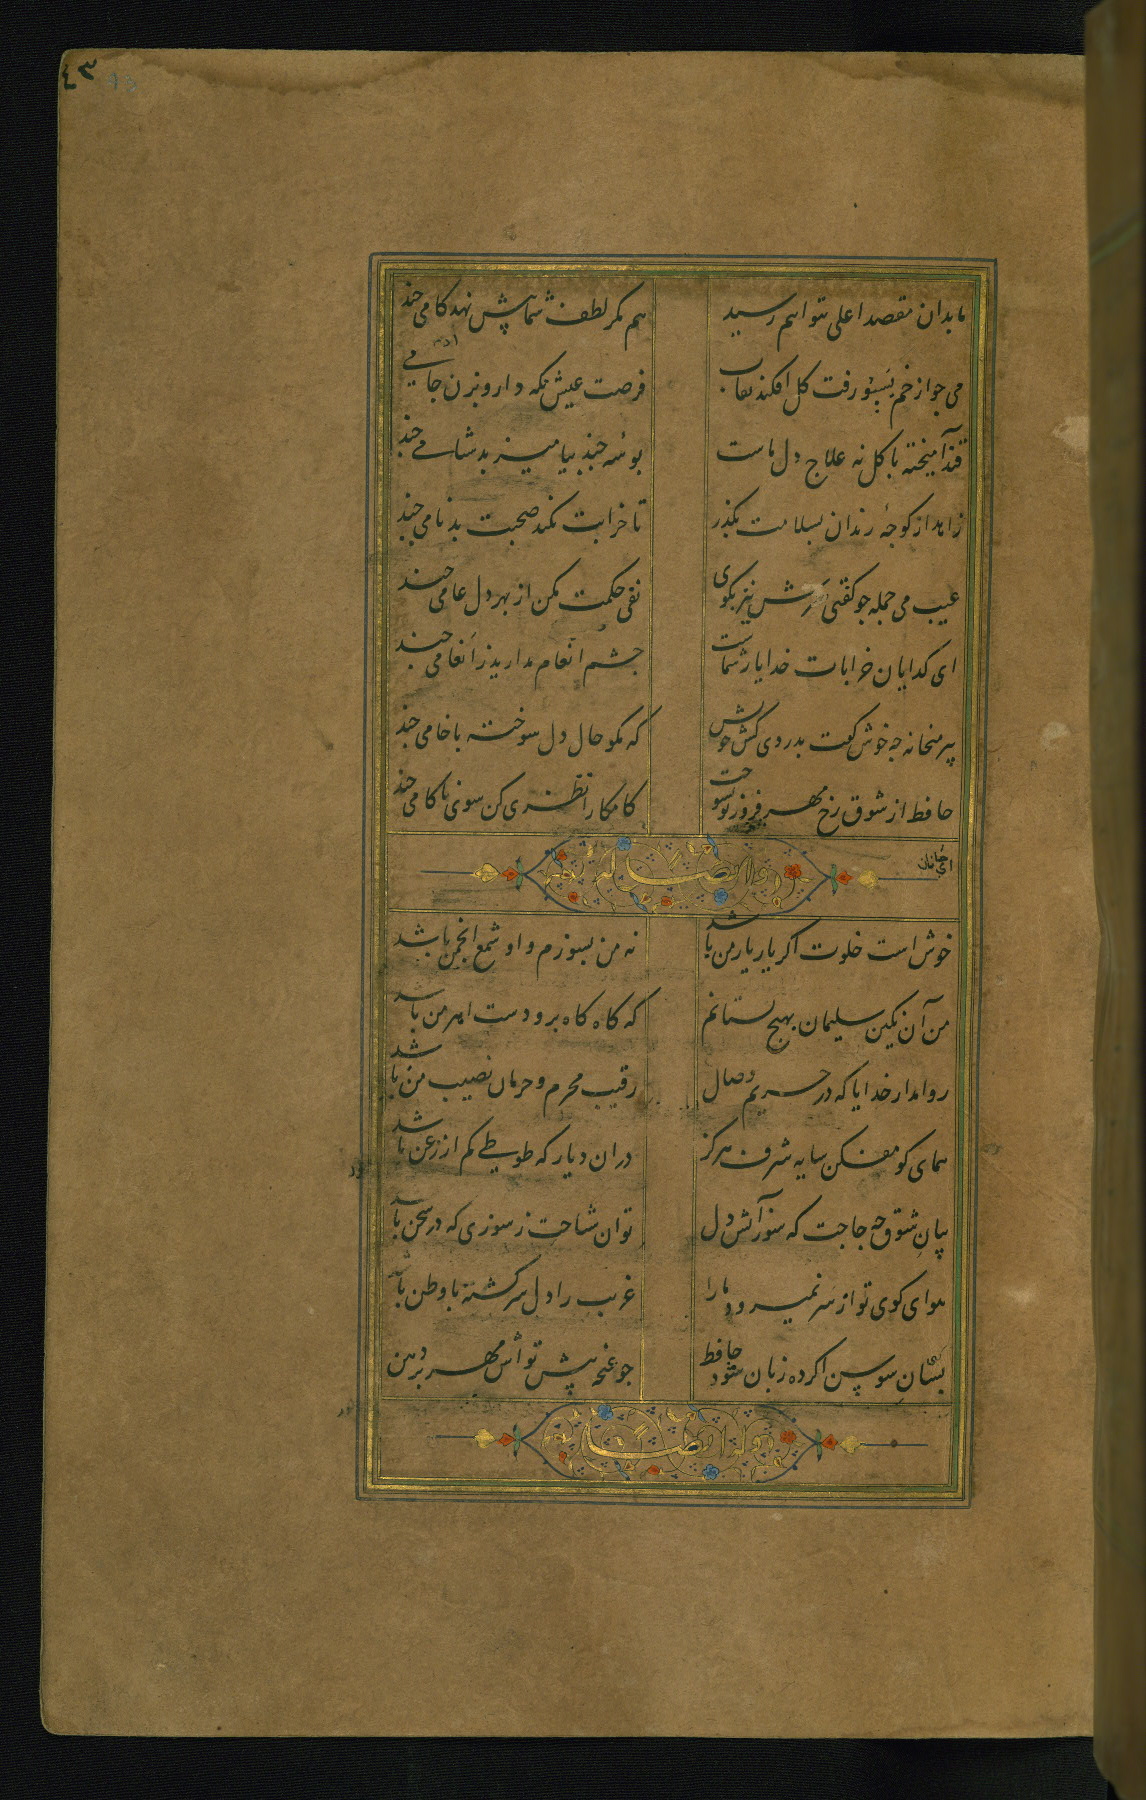 ٤٣
ما بدان مقصد اعلی نتوانیم رسید
هم مکر لطف شما پیش نهد کامی جند
می جو از خم بسبو رفت کل افکند نقاب
فرصت عیش نکه دار و بزن جامی
قند آمیخته با کل نه علاج دل ماست
بوسهٔ جند بیامیز بدشنامی جند
زاهد از کوجهٔ رندان بسلامت بکذر
تا خرابت نکند صحبت بدنامی جند
عیب می جمله جو کفتی هنرش نیز بکوی
نفی حکمت مکن از بهر دل عامی جند
ای کدایان خرابات خدا یار شماست
جشم انعام مدارید ز انعامی جند
پیر میخانه جه خوش کفت بدردی کش خویش
که مکو حال دل سوخته با خامی جند
حافظ از شوق رخ مهر فروز تو بسوخت
کامکارا نظری کن سوی ناکامی جند
خوش است خلوت اکر یار یار من باشد
نه من بسوزم و او شمع انجمن باشد
من آن نکین سلیمان بهیج نستانم
که کاه کاه برو دست اهرمن باشد
روا مدار خدایا که در حریم وصال
رقیب محرم و حرمان نصیب من باشد
همای کو مفکن سایه شرف هرکز
دران دیار که طوطی کم از زغن باشد
بیان شوق جه حاجت که سوز آتش دل
توان شناخت ز سوزی که در سخن باشد
هوای کوی تو از سر نمیرود ما را
غریب را دل سرکشته با وطن باشد
بسان سوسن اکر ده زبان شود حافظ
جو غنجه پیش تواش مهر بر دهن